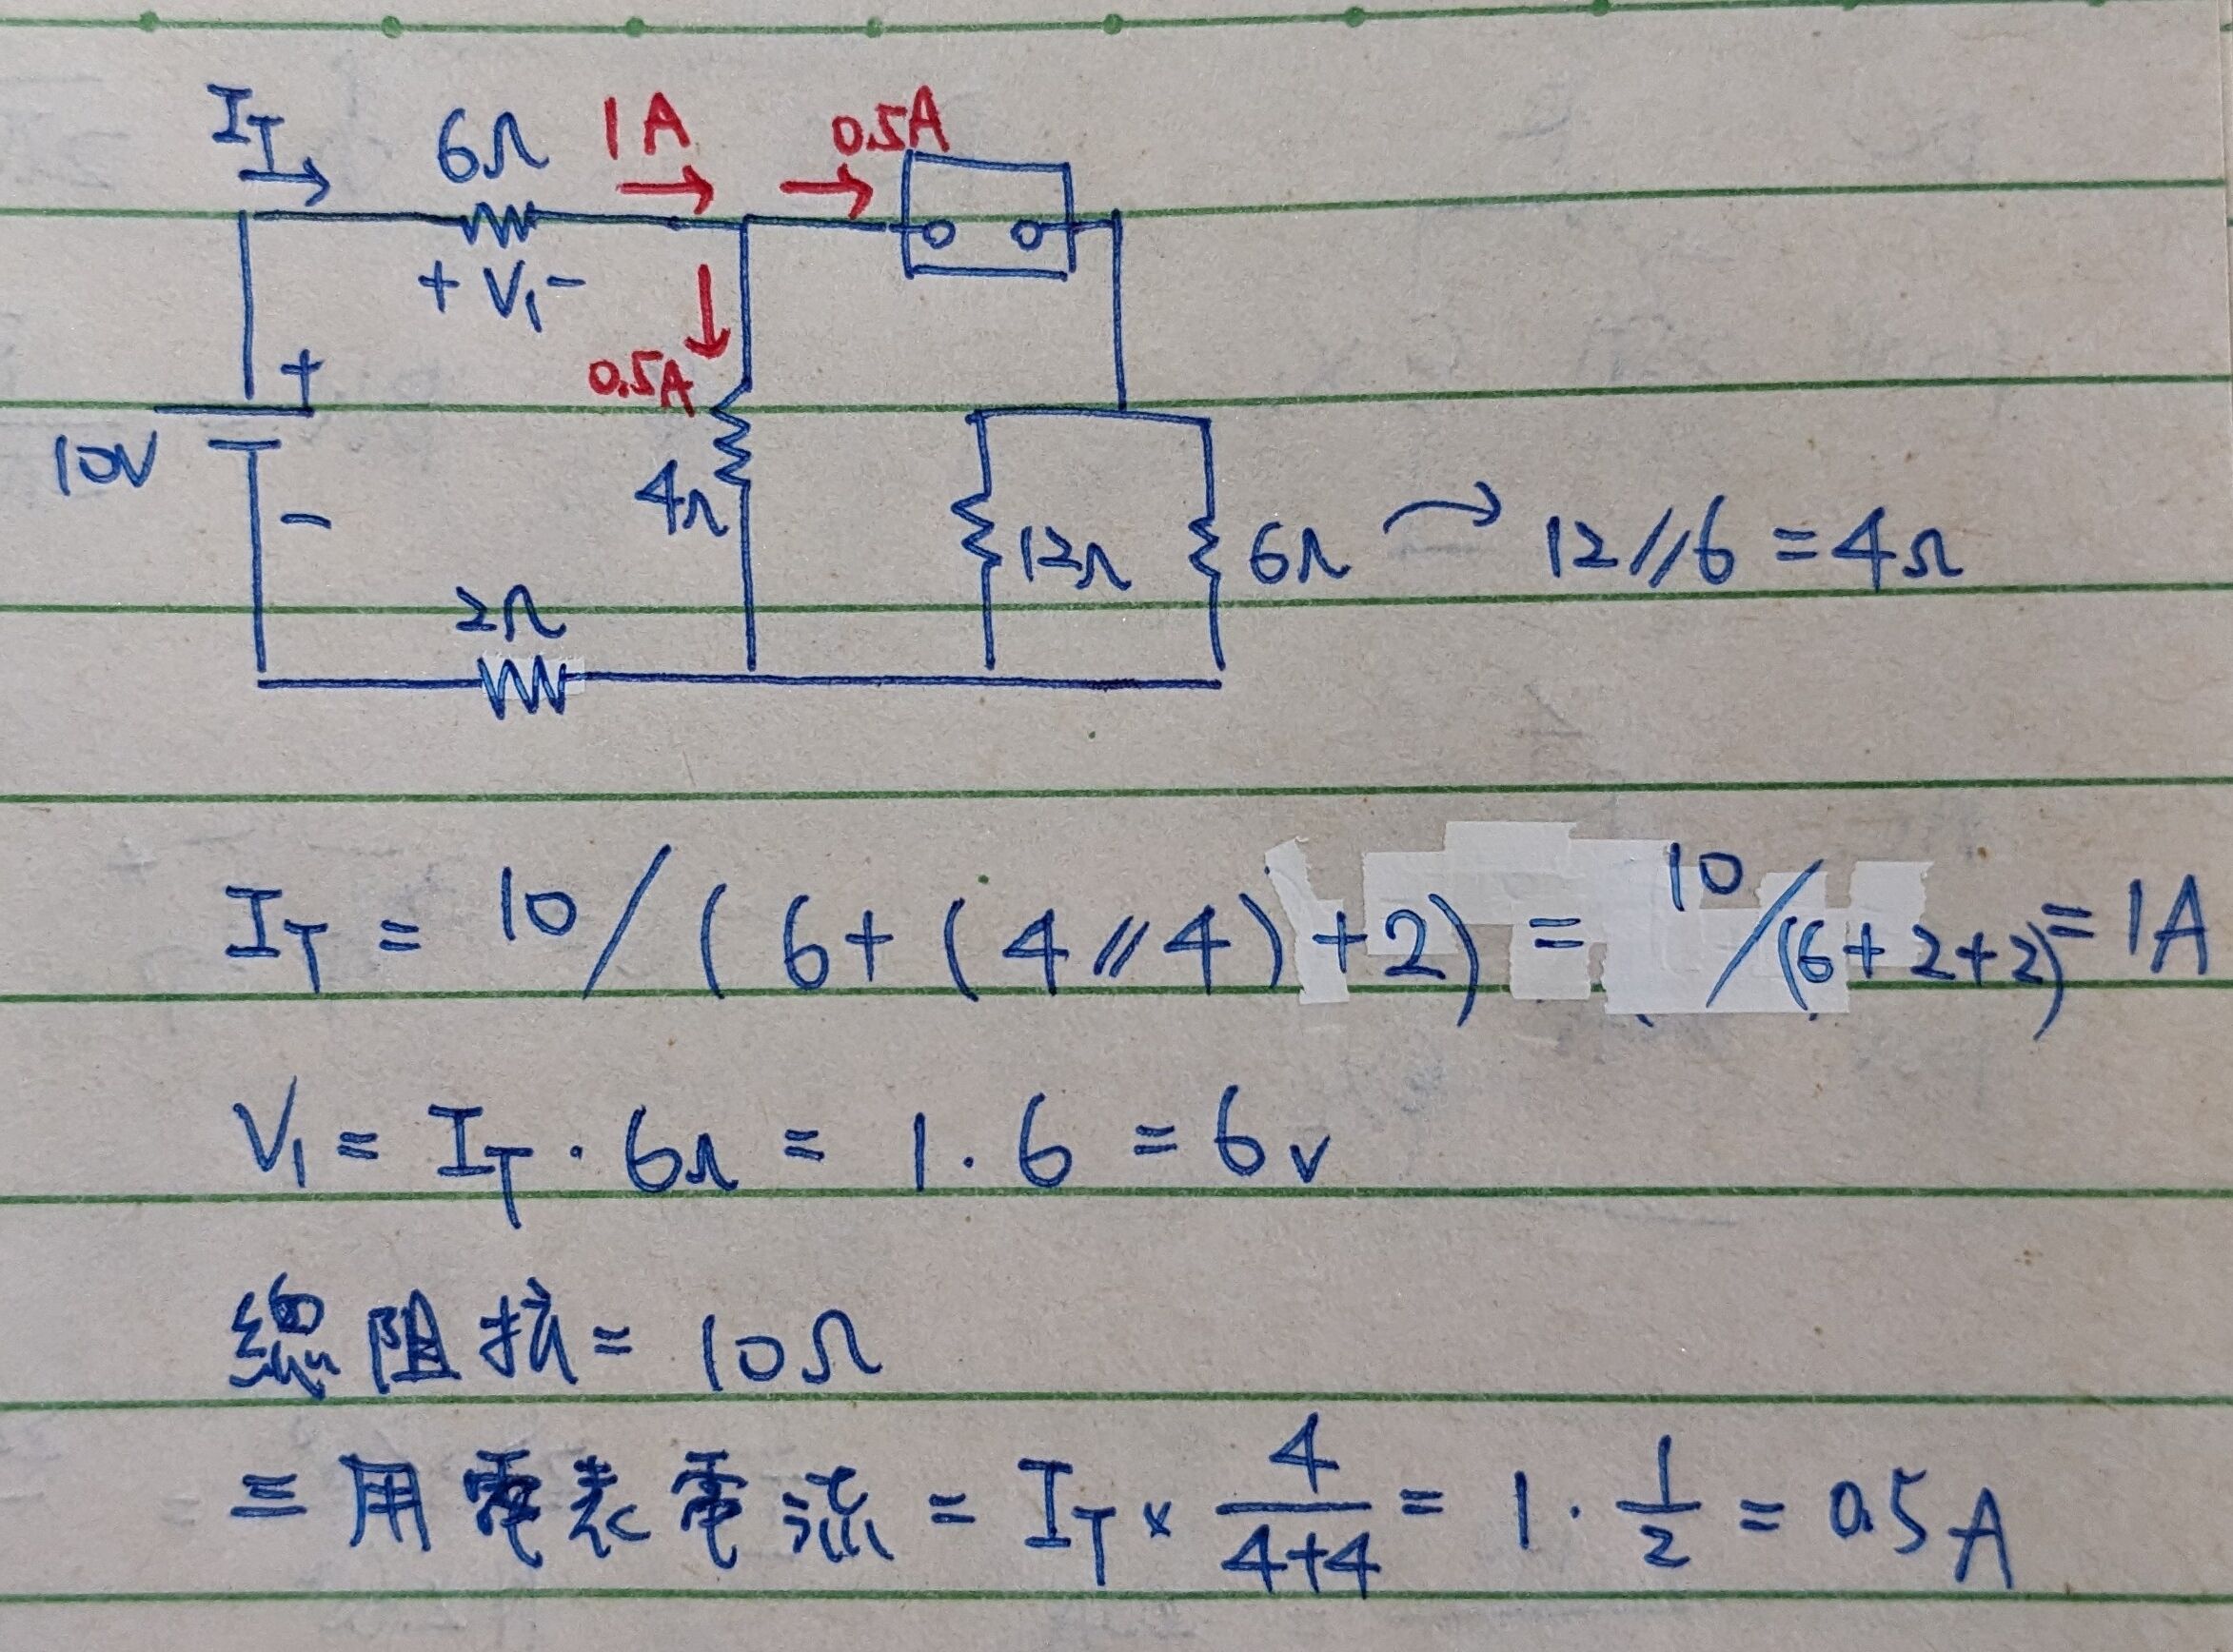 I_T 6Ω 1A 0.5A
+ V₁ -
+
0.5A
10V
4Ω
-
12Ω 6Ω → 12//6 = 4Ω
2Ω
I_T = 10/(6+(4//4)+2) = 10/(6+2+2) = 1A
V₁ = I_T · 6Ω = 1 · 6 = 6V
總阻抗 = 10Ω
三用電表電流 = I_T × 4/(4+4) = 1 · 1/2 = 0.5A